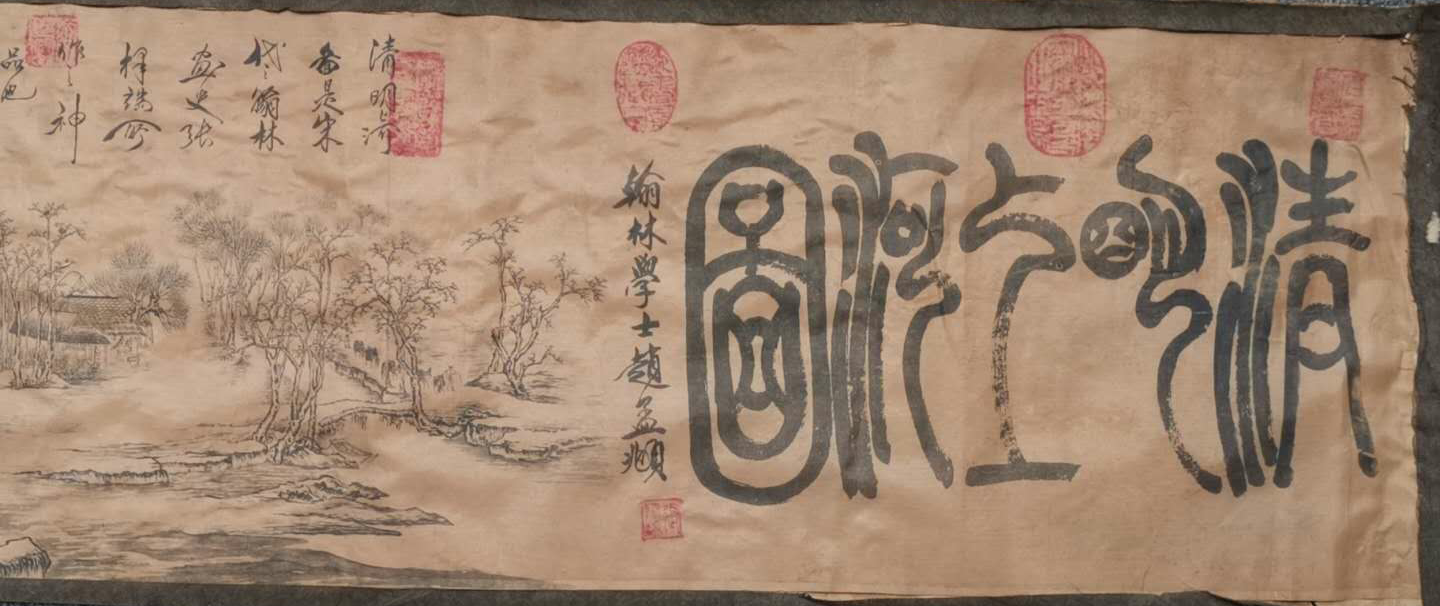 清明上河圖
翰林學士趙孟頫
清明上河
卷是宋
代翰林
畫史張
擇端所
作之神
品也